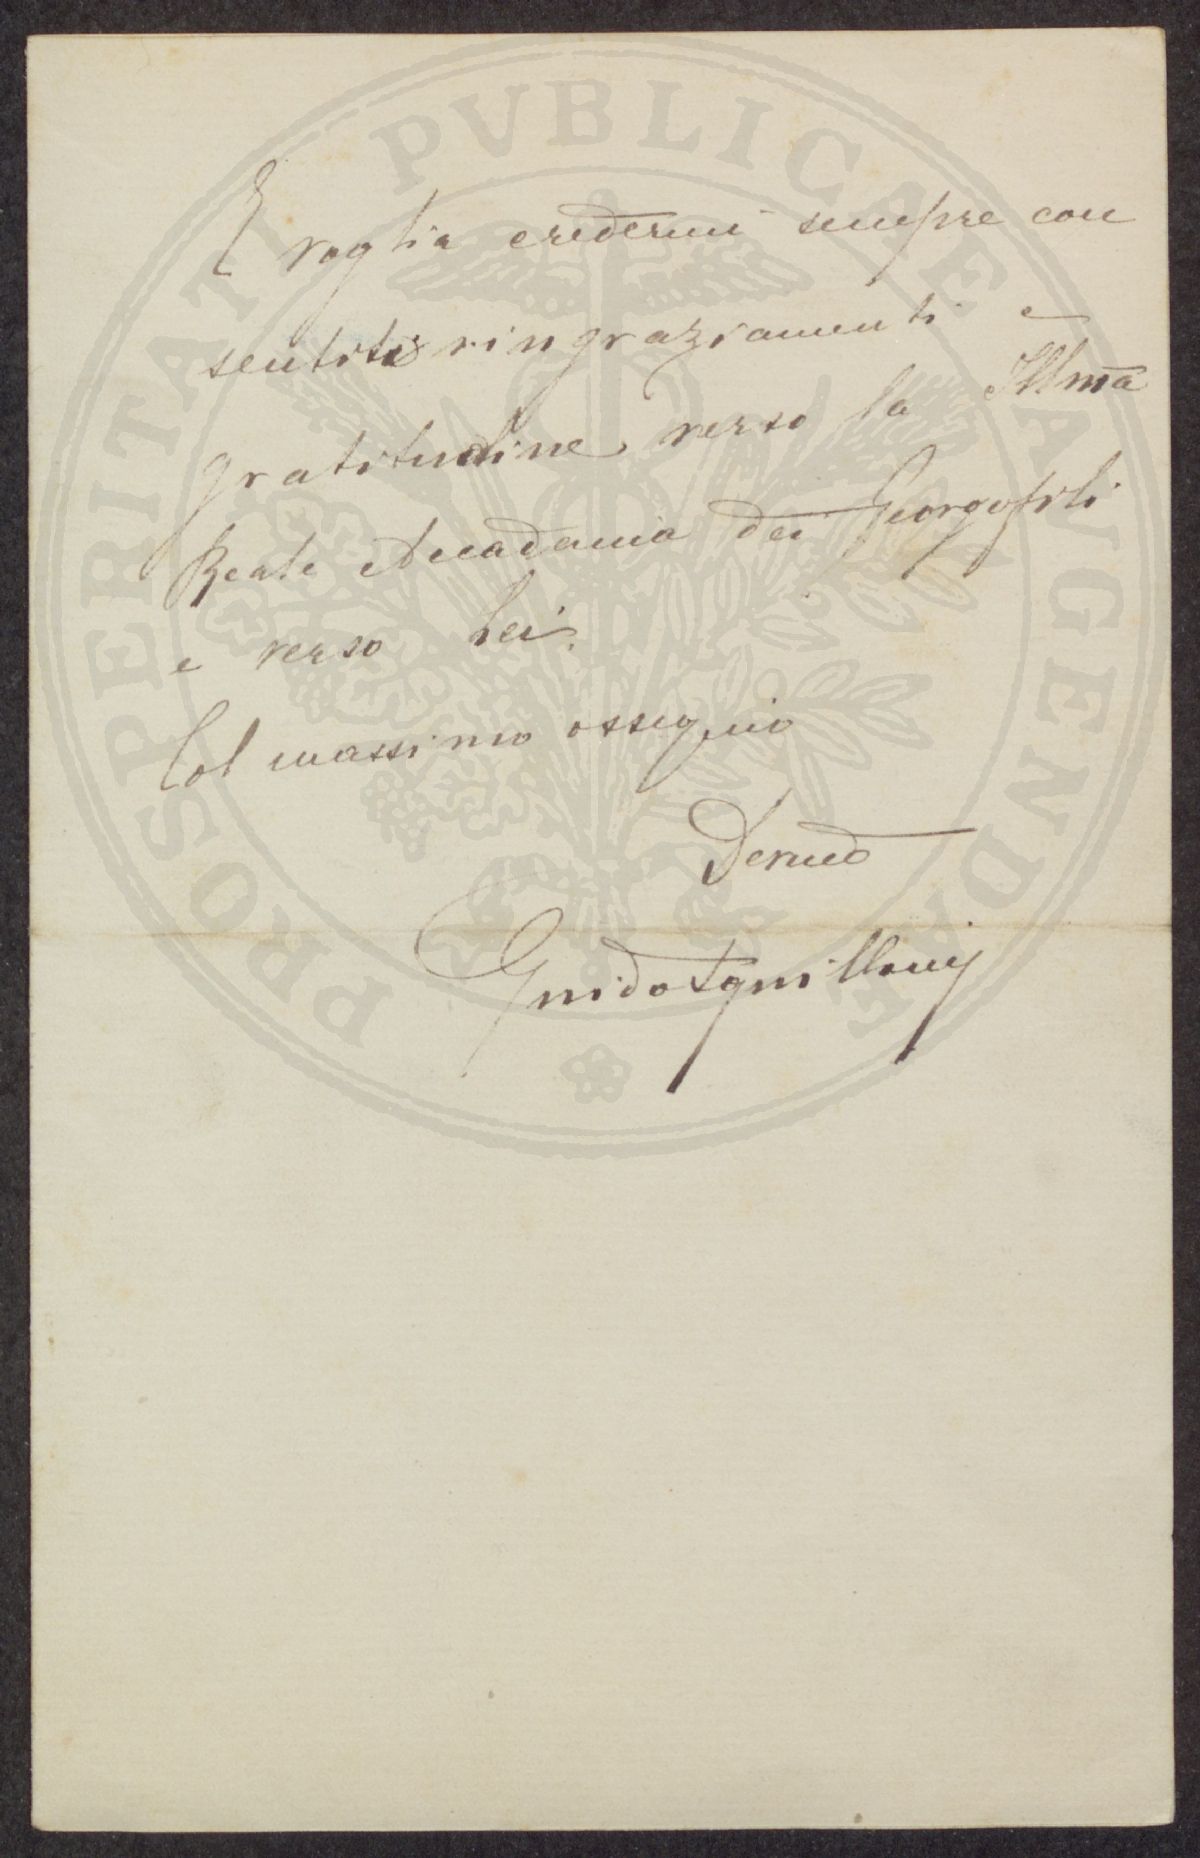 E voglia credermi sempre con
sentiti ringraziamenti e
gratitudine verso la Illma
Reale Accademia dei Georgofili
e verso Lei.
Col massimo ossequio
Guido
PROSPERITATI PVBLICAE AVGENDAE